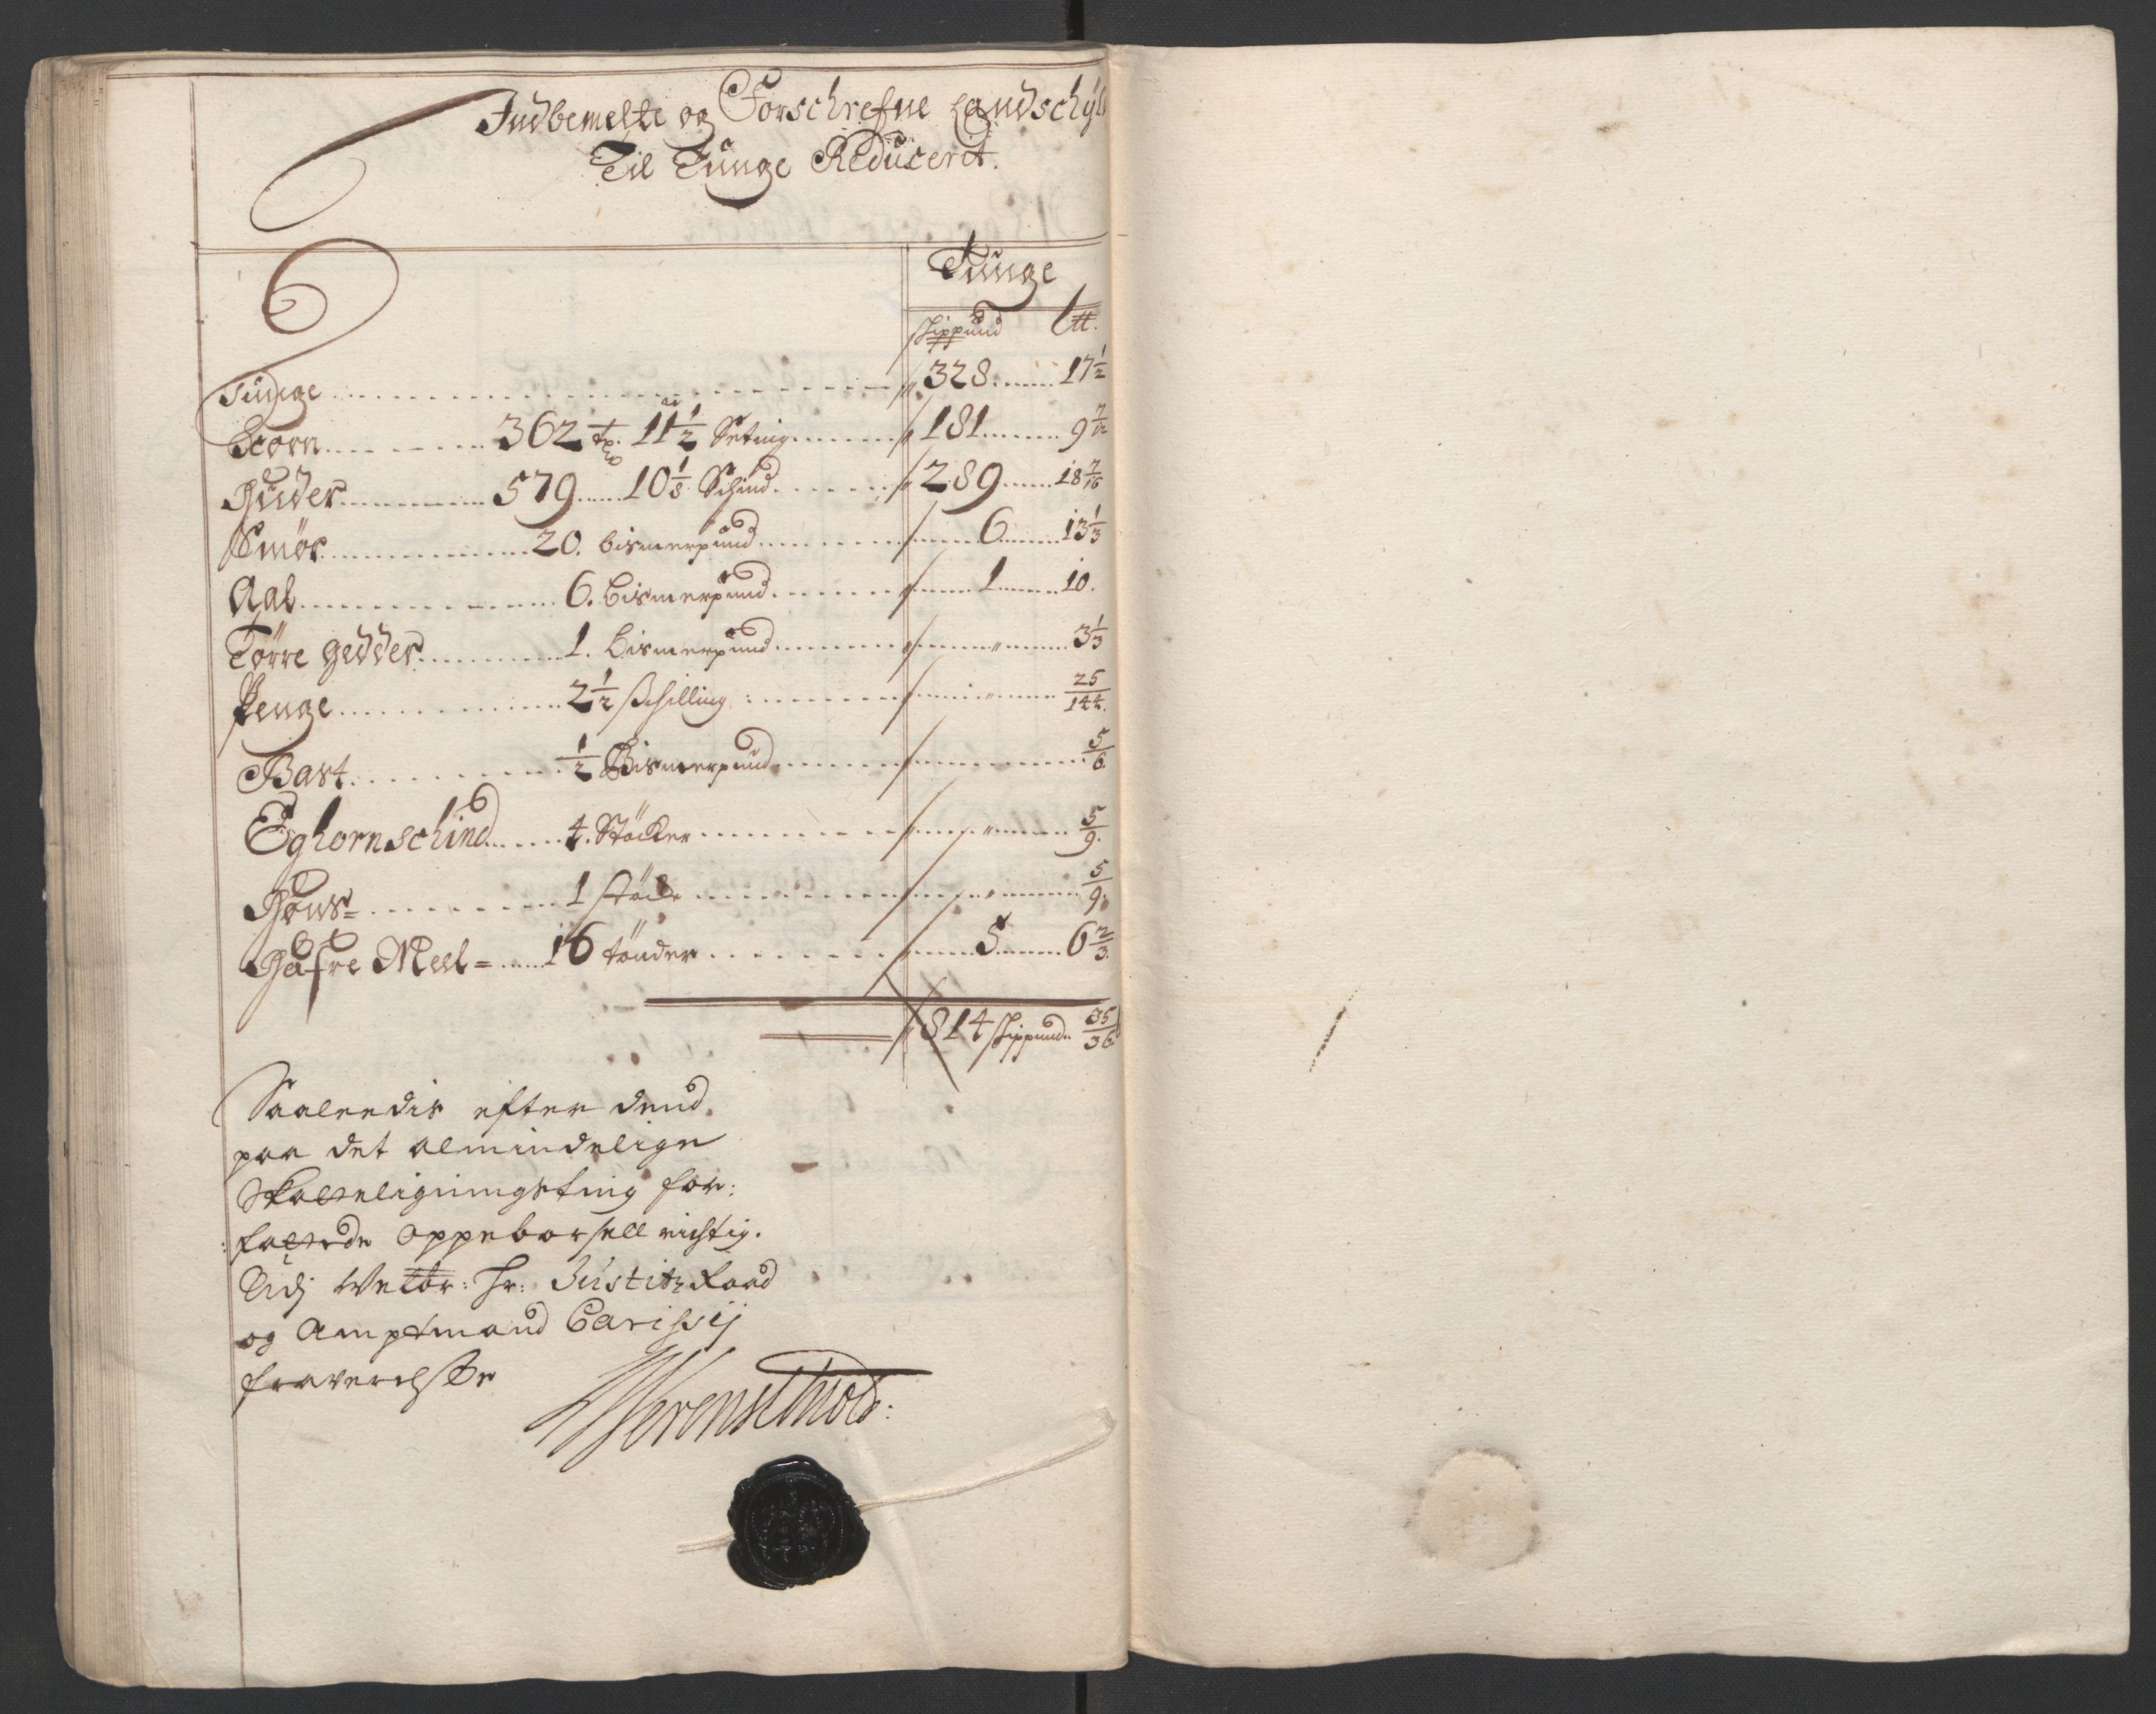 Indbemelte og Forschrefne Landschÿl
Til Tunge Reduceret.
Tunge
skippund L℔.
Tunge 328 17½
Korn 362 11½ Seting 181 9 7/12
Huder 579 10⅛ Schind 289 18 7/16
Smör 20. bismerpund 6 13⅓
Aal 6. bismerpund 1 10.
Törre gedder 1. bismerpund 〃 3⅓
Penge 2½ skilling 〃 25/144.
Bast ½ Bismerpund 5/6.
Eghornschind 4. Stöcker 〃 5/9.
Höns= 1 stöcke 〃 5/9.
Hafre Meel= 16 tönder 5 6⅔.
814 skippund 35/36
Saaleedis efter dend
paa det almindelige
Skatteligningsting for:
:fattede oppeborsell rictig.
Udj Welbr: Hr: Justitz Raad
og Amptmand Carisij
fraverelsse